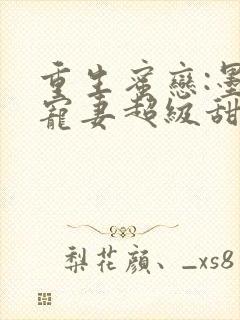 重生蜜戀:墨
寵妻超級甜
梨花顔、_xs8